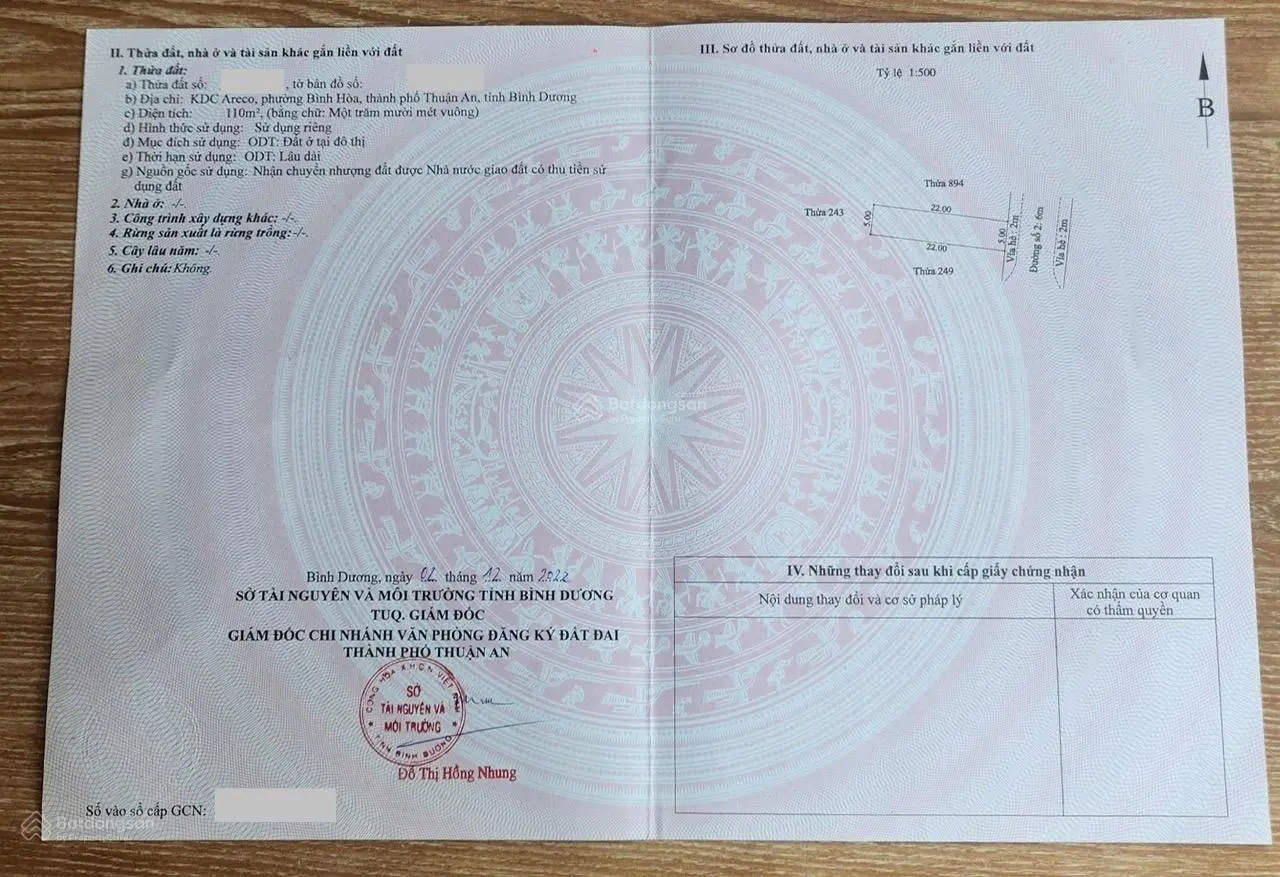 II. Thửa đất, nhà ở và tài sản khác gắn liền với đất
1. Thửa đất:
a) Thửa đất số: , tờ bản đồ số:
b) Địa chỉ: KDC Areco, phường Bình Hòa, thành phố Thuận An, tỉnh Bình Dương
c) Diện tích: 110m², (bằng chữ: Một trăm mười mét vuông)
d) Hình thức sử dụng: Sử dụng riêng
đ) Mục đích sử dụng: ODT: Đất ở tại đô thị
e) Thời hạn sử dụng: ODT: Lâu dài
g) Nguồn gốc sử dụng: Nhận chuyển nhượng đất được Nhà nước giao đất có thu tiền sử
dụng đất
2. Nhà ở: -/-.
3. Công trình xây dựng khác: -/-.
4. Rừng sản xuất là rừng trồng:-/-.
5. Cây lâu năm: -/-.
6. Ghi chú: Không.
Bình Dương, ngày 02 tháng 12 năm 2022
SỞ TÀI NGUYÊN VÀ MÔI TRƯỜNG TỈNH BÌNH DƯƠNG
TUQ. GIÁM ĐỐC
GIÁM ĐỐC CHI NHÁNH VĂN PHÒNG ĐĂNG KÝ ĐẤT ĐAI
THÀNH PHỐ THUẬN AN
CỘNG HÒA X.H.C.N VIỆT NAM
SỞ
TÀI NGUYÊN VÀ
MÔI TRƯỜNG
TỈNH BÌNH DƯƠNG
Đỗ Thị Hồng Nhung
Số vào sổ cấp GCN:
III. Sơ đồ thửa đất, nhà ở và tài sản khác gắn liền với đất
Tỷ lệ 1:500
B
Thửa 894
Thửa 243
22.00
5.00
5.00
22.00
Thửa 249
Vỉa hè : 2m
Đường số 2: 6m
Vỉa hè : 2m
IV. Những thay đổi sau khi cấp giấy chứng nhận
Nội dung thay đổi và cơ sở pháp lý
Xác nhận của cơ quan
có thẩm quyền
Batdongsan
Batdongsan
by PropertyGuru